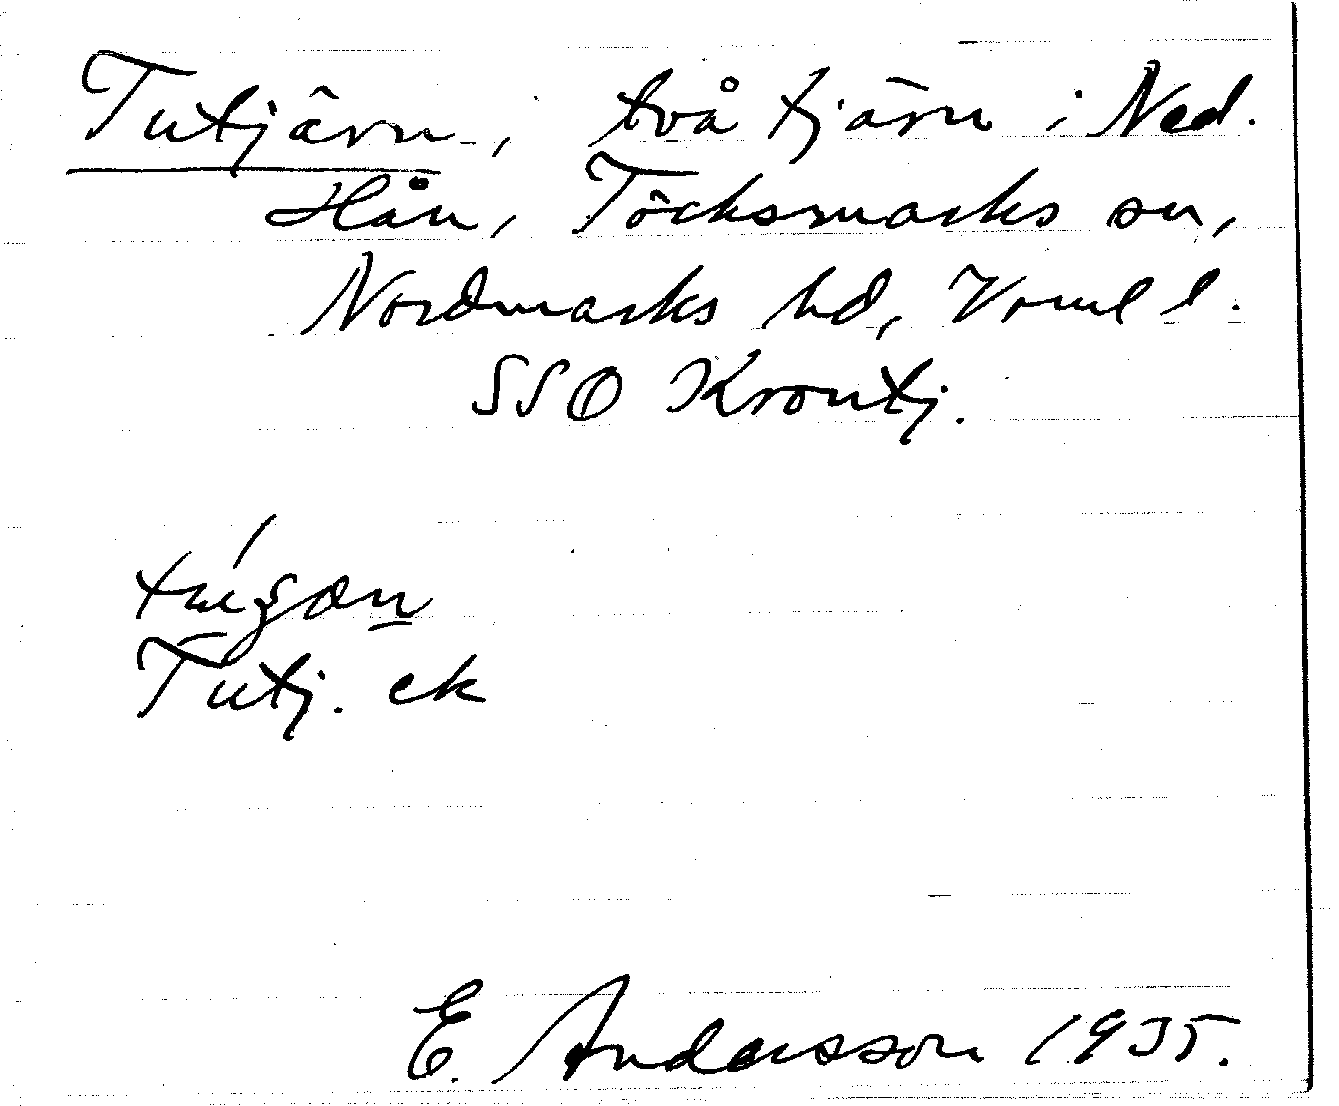 Tutjärn, två tjärn i Ned.
Hån, Töcksmarks sn,
Nordmarks hd, Vrml l.
SSO Krontj.
Tutj. ek
E. Andersson 1935.